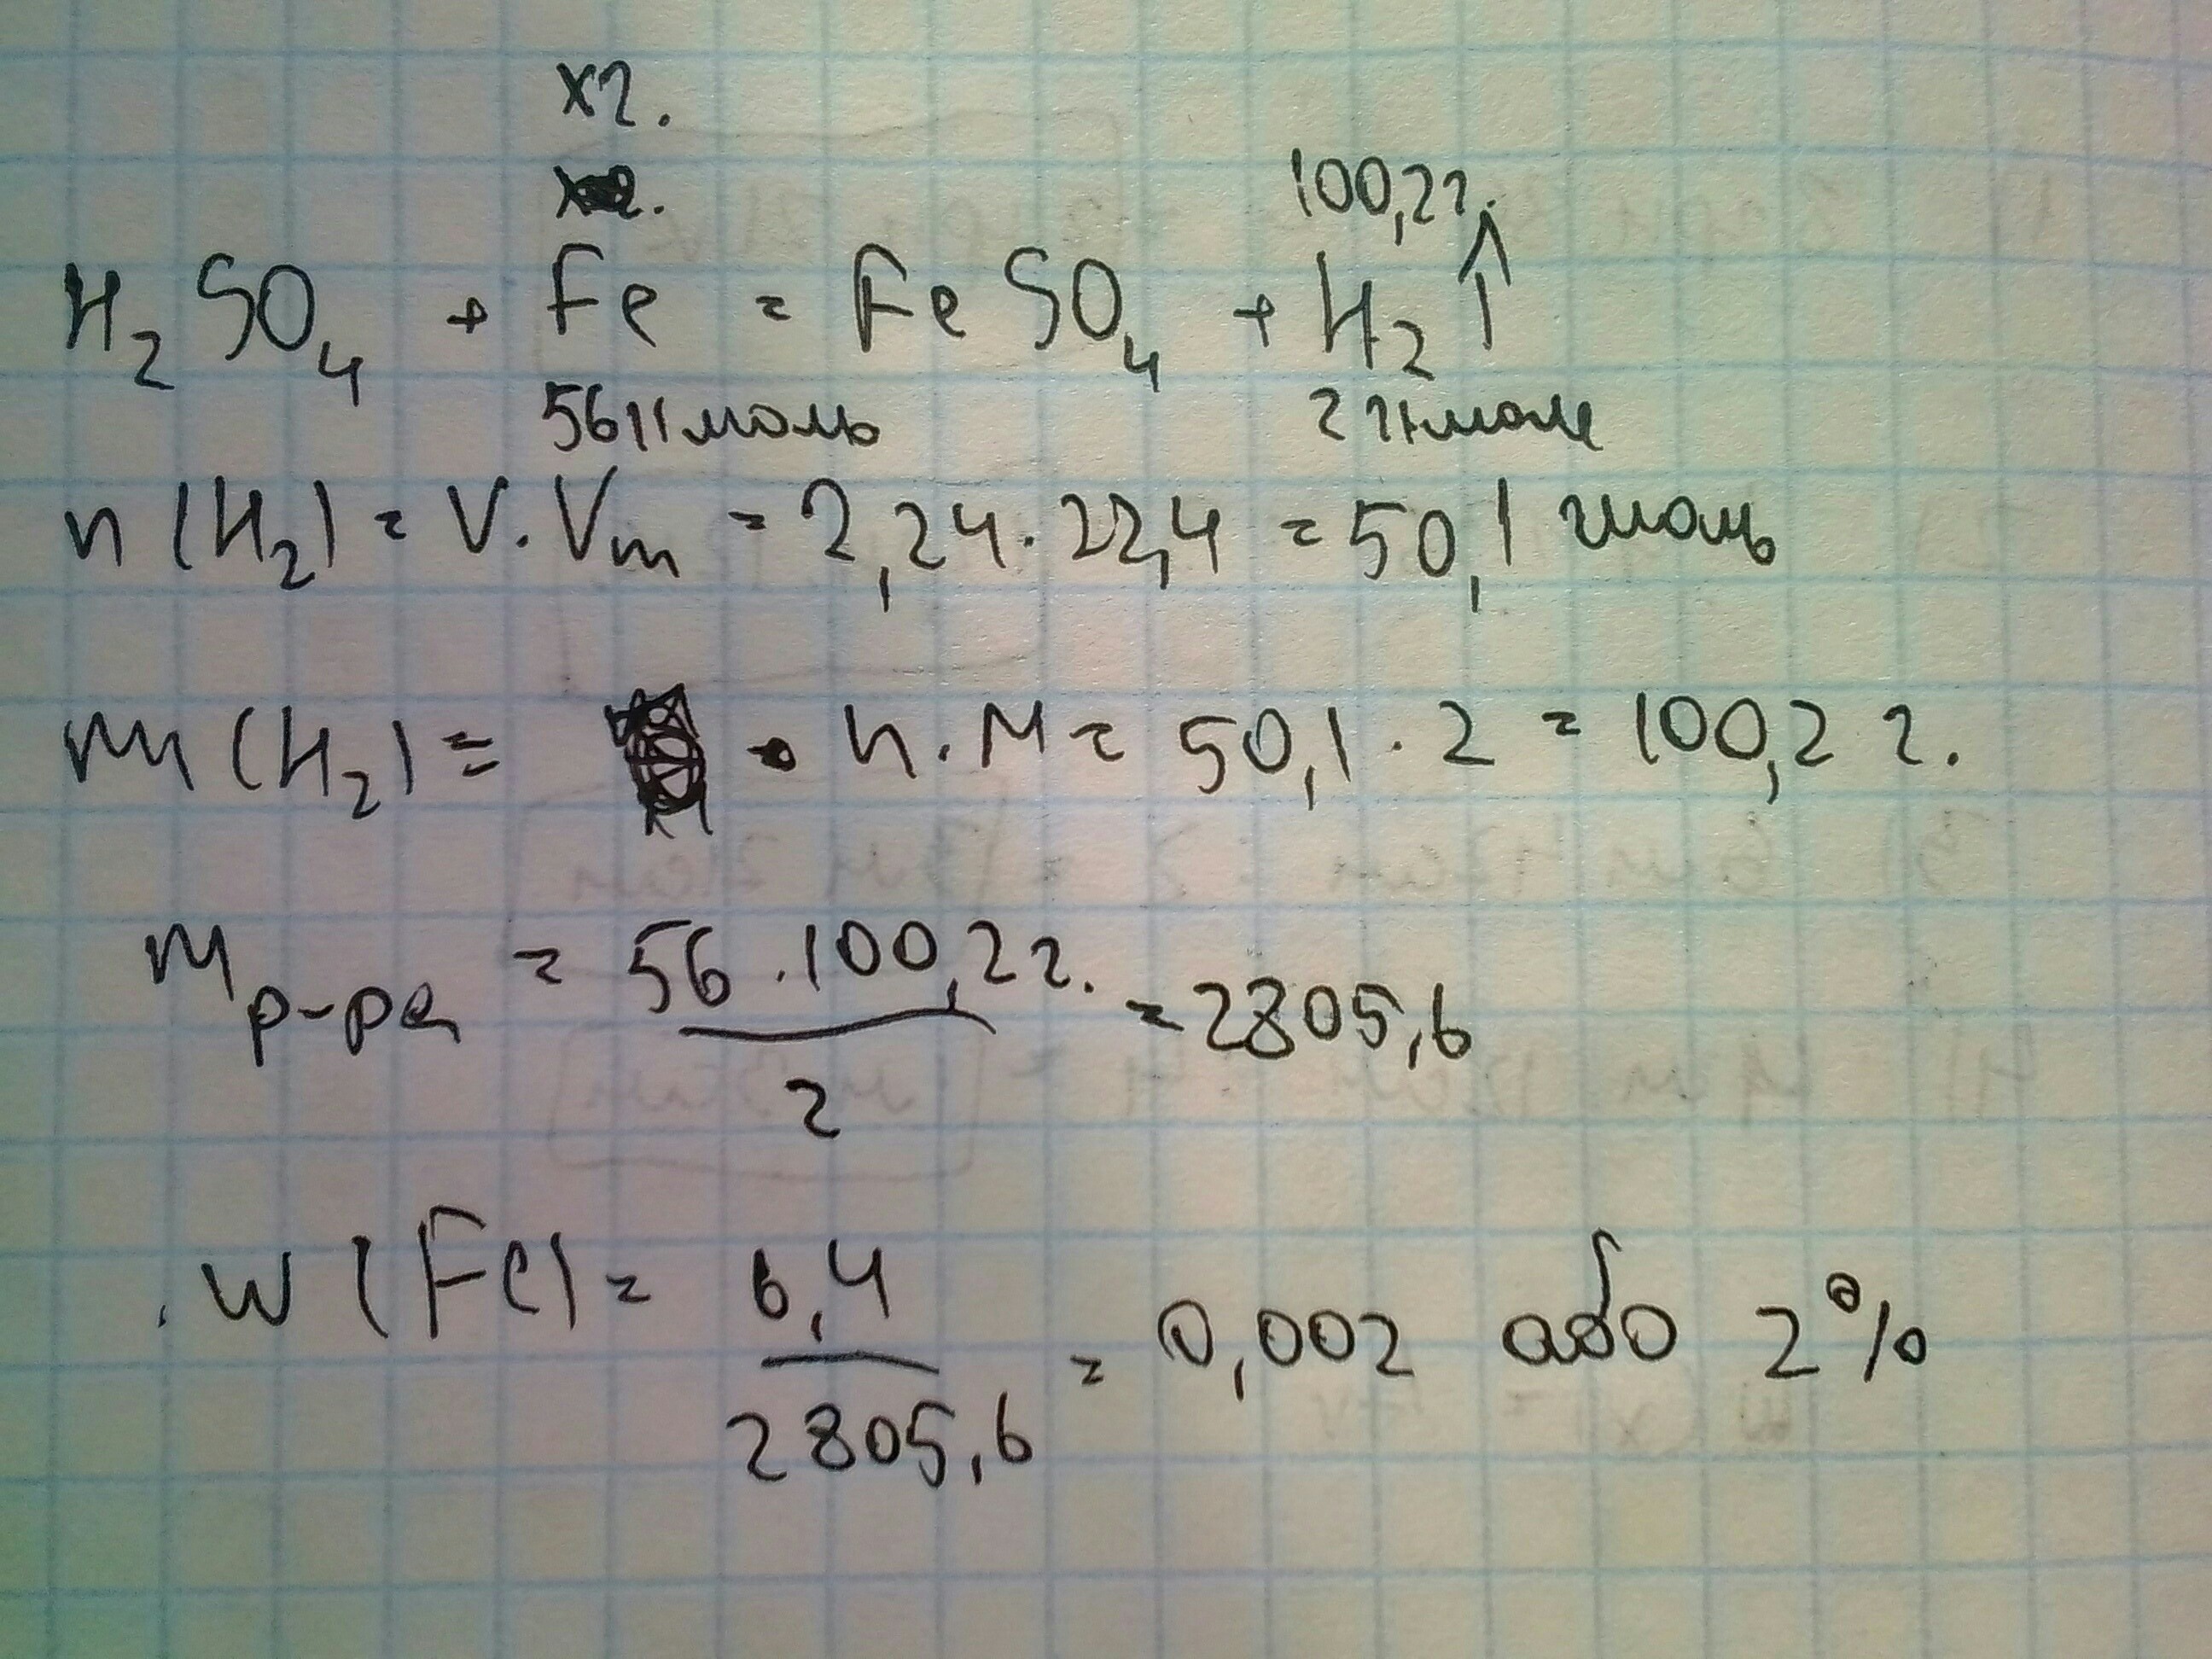 x г.
100,2 г.
H₂SO₄ + Fe = FeSO₄ + H₂↑
56 г/моль 2 г/моль
n(H₂) = V · Vm = 2,24 · 22,4 = 50,1 моль
m(H₂) = · n · M = 50,1 · 2 = 100,2 г.
m р-ра = 56 · 100,2 г. / 2 = 2805,6
w(Fe) = 6,4 / 2805,6 = 0,002 або 2%